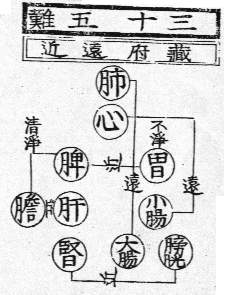 三十五難
藏府遠近
肺
心
不淨
清淨
胃
近
脾
遠
遠
小腸
肝
近
膽
膀胱
大腸
腎
近